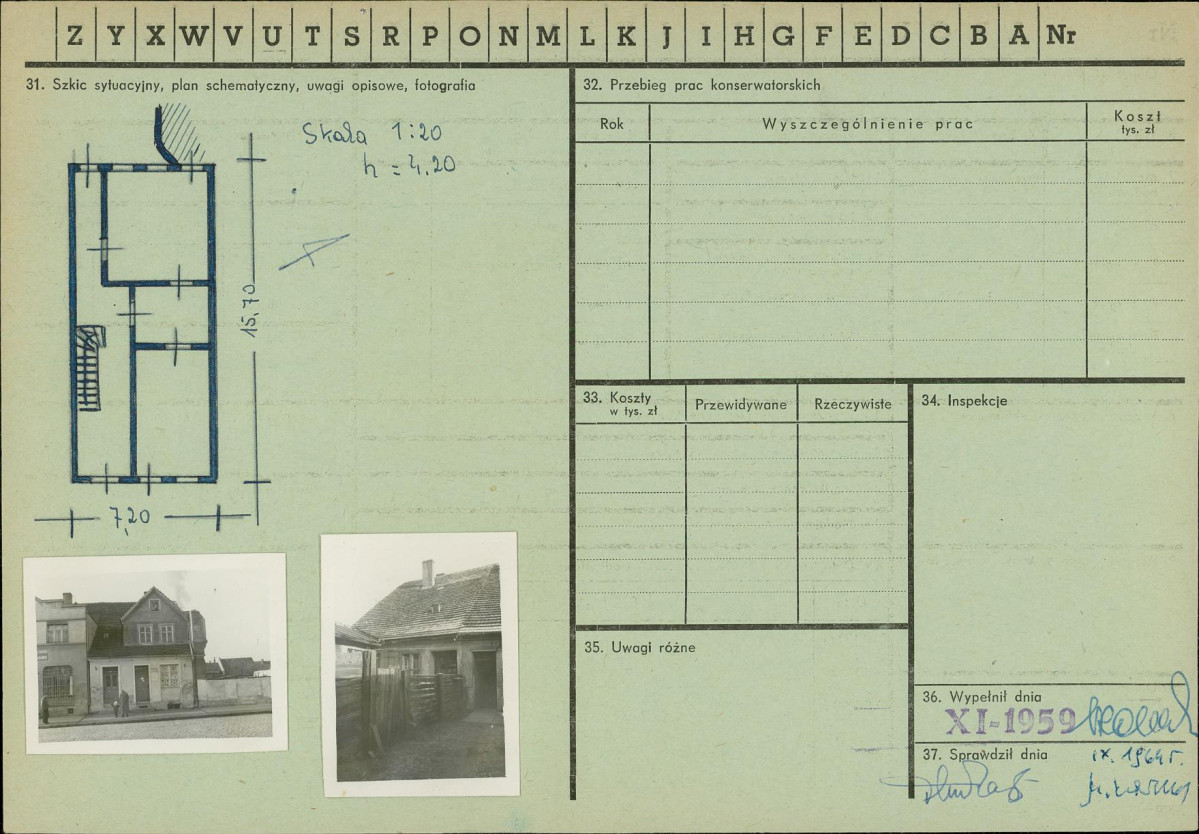 Z Y X W V U T S R P O N M L K J I H G F E D C B A Nr
31. Szkic sytuacyjny, plan schematyczny, uwagi opisowe, fotografia
Skala 1:20
h = 4.20
15,70
7,20
32. Przebieg prac konserwatorskich
Rok
Wyszczególnienie prac
Koszt
tys. zł
33. Koszty
w tys. zł
Przewidywane
Rzeczywiste
34. Inspekcje
35. Uwagi różne
36. Wypełnił dnia
XI-1959
37. Sprawdził dnia
IX. 1964 r.